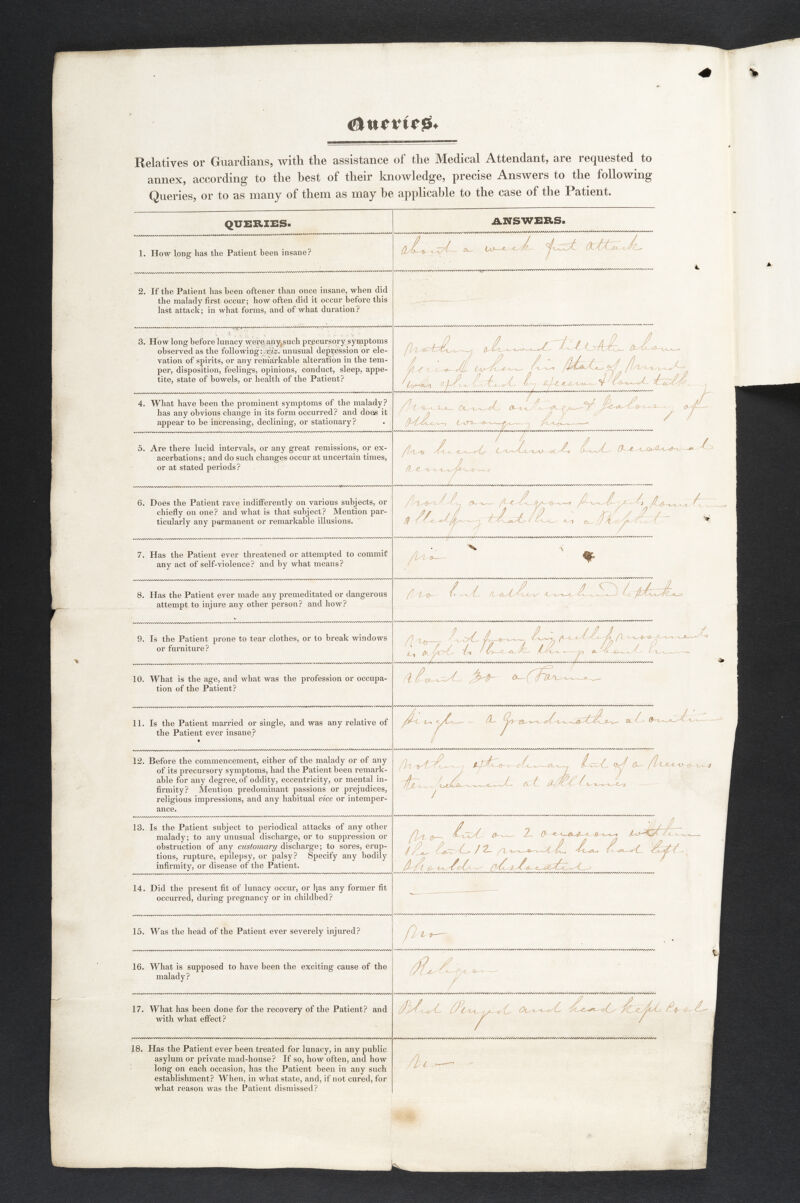 Queries.
Relatives or Guardians, with the assistance of the Medical Attendant, are requested to
annex, according to the best of their knowledge, precise Answers to the following
Queries, or to as many of them as may be applicable to the case of the Patient.
QUERIES.
ANSWERS.
1. How long has the Patient been insane?
about a week first attack
2. If the Patient has been oftener than once insane, when did
the malady first occur; how often did it occur before this
last attack; in what forms, and of what duration?
3. How long before lunacy were any such precursory symptoms
observed as the following: viz. unusual depression or ele-
vation of spirits, or any remarkable alteration in the tem-
per, disposition, feelings, opinions, conduct, sleep, appe-
tite, state of bowels, or health of the Patient?
Nothing observed till the above
period when his State of Mind
was exhibited by excessive & loud talking
4. What have been the prominent symptoms of the malady?
has any obvious change in its form occurred? and does it
appear to be increasing, declining, or stationary?
Noise and outrage & Jealousy of
others wronging him
5. Are there lucid intervals, or any great remissions, or ex-
acerbations; and do such changes occur at uncertain times,
or at stated periods?
No lucid intervals but occasional
remissions
6. Does the Patient rave indifferently on various subjects, or
chiefly on one? and what is that subject? Mention par-
ticularly any permanent or remarkable illusions.
Mostly on religious subjects sometimes
alledging that he is a Prophet
7. Has the Patient ever threatened or attempted to commit
any act of self-violence? and by what means?
No
8. Has the Patient ever made any premeditated or dangerous
attempt to injure any other person? and how?
No but rather inclined to strike
9. Is the Patient prone to tear clothes, or to break windows
or furniture?
No but from his restless movements
is apt to break things about him
10. What is the age, and what was the profession or occupa-
tion of the Patient?
about 30 a Farmer
11. Is the Patient married or single, and was any relative of
the Patient ever insane?
Single - a Grandmother at one time
12. Before the commencement, either of the malady or of any
of its precursory symptoms, had the Patient been remark-
able for any degree of oddity, eccentricity, or mental in-
firmity? Mention predominant passions or prejudices,
religious impressions, and any habitual vice or intemper-
ance.
Nothing extraordinary but of a Nervous
temperament at all times
13. Is the Patient subject to periodical attacks of any other
malady; to any unusual discharge, or to suppression or
obstruction of any customary discharge; to sores, erup-
tions, rupture, epilepsy, or palsy? Specify any bodily
infirmity, or disease of the Patient.
No but on 2 occasions within
the last 12 months has had left
Shoulder dislocated
14. Did the present fit of lunacy occur, or has any former fit
occurred, during pregnancy or in childbed?
15. Was the head of the Patient ever severely injured?
No
16. What is supposed to have been the exciting cause of the
malady?
Religion
17. What has been done for the recovery of the Patient? and
with what effect?
Bled Purged and head kept Cool
18. Has the Patient ever been treated for lunacy, in any public
asylum or private mad-house? If so, how often, and how
long on each occasion, has the Patient been in any such
establishment? When, in what state, and, if not cured, for
what reason was the Patient dismissed?
No